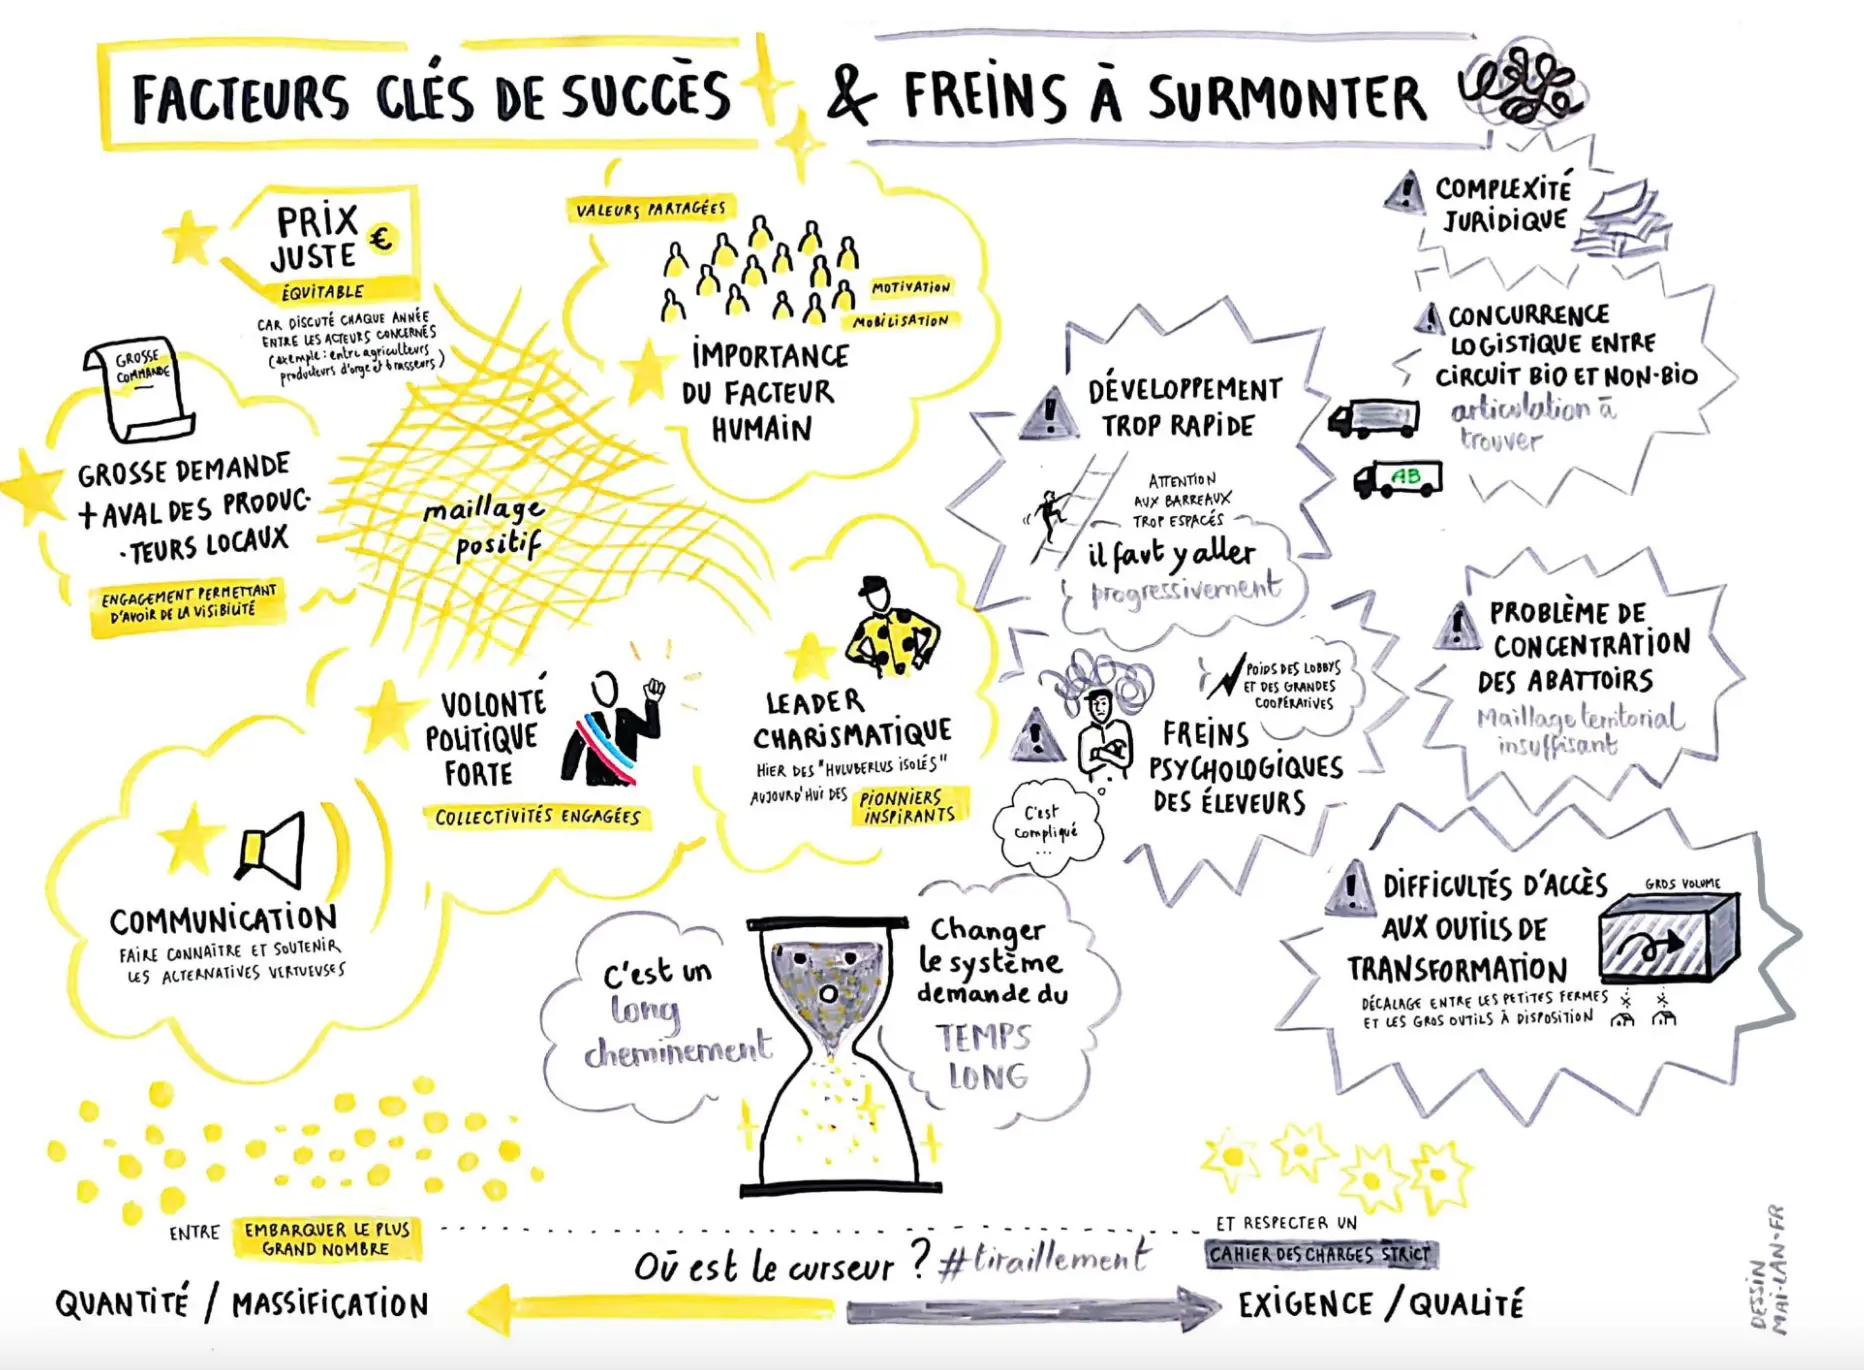 FACTEURS CLÉS DE SUCCÈS & FREINS À SURMONTER
PRIX
JUSTE
€
ÉQUITABLE
CAR DISCUTÉ CHAQUE ANNÉE
ENTRE LES ACTEURS CONCERNÉS
(exemple : entre agriculteurs
producteurs d'orge et brasseurs)
VALEURS PARTAGÉES
MOTIVATION
MOBILISATION
IMPORTANCE
DU FACTEUR
HUMAIN
GROSSE
COMMANDE
GROSSE DEMANDE
+ AVAL DES PRODUC-
-TEURS LOCAUX
ENGAGEMENT PERMETTANT
D'AVOIR DE LA VISIBILITÉ
maillage
positif
VOLONTÉ
POLITIQUE
FORTE
COLLECTIVITÉS ENGAGÉES
LEADER
CHARISMATIQUE
HIER DES "HULUBERLUS ISOLÉS"
AUJOURD'HUI DES PIONNIERS
INSPIRANTS
COMMUNICATION
FAIRE CONNAÎTRE ET SOUTENIR
LES ALTERNATIVES VERTUEUSES
COMPLEXITÉ
JURIDIQUE
CONCURRENCE
LOGISTIQUE ENTRE
CIRCUIT BIO ET NON-BIO
articulation à
trouver
AB
DÉVELOPPEMENT
TROP RAPIDE
ATTENTION
AUX BARREAUX
TROP ESPACÉS
il faut y aller
progressivement
POIDS DES LOBBYS
ET DES GRANDES
COOPÉRATIVES
FREINS
PSYCHOLOGIQUES
DES ÉLEVEURS
C'est
compliqué
...
PROBLÈME DE
CONCENTRATION
DES ABATTOIRS
Maillage territorial
insuffisant
DIFFICULTÉS D'ACCÈS
AUX OUTILS DE
TRANSFORMATION
DÉCALAGE ENTRE LES PETITES FERMES
ET LES GROS OUTILS À DISPOSITION
GROS VOLUME
C'est un
long
cheminement
Changer
le système
demande du
TEMPS
LONG
ENTRE EMBARQUER LE PLUS
GRAND NOMBRE
ET RESPECTER UN
CAHIER DES CHARGES STRICT
Où est le curseur ? #tiraillement
QUANTITÉ / MASSIFICATION
EXIGENCE / QUALITÉ
DESSIN
MAI-LAN.FR